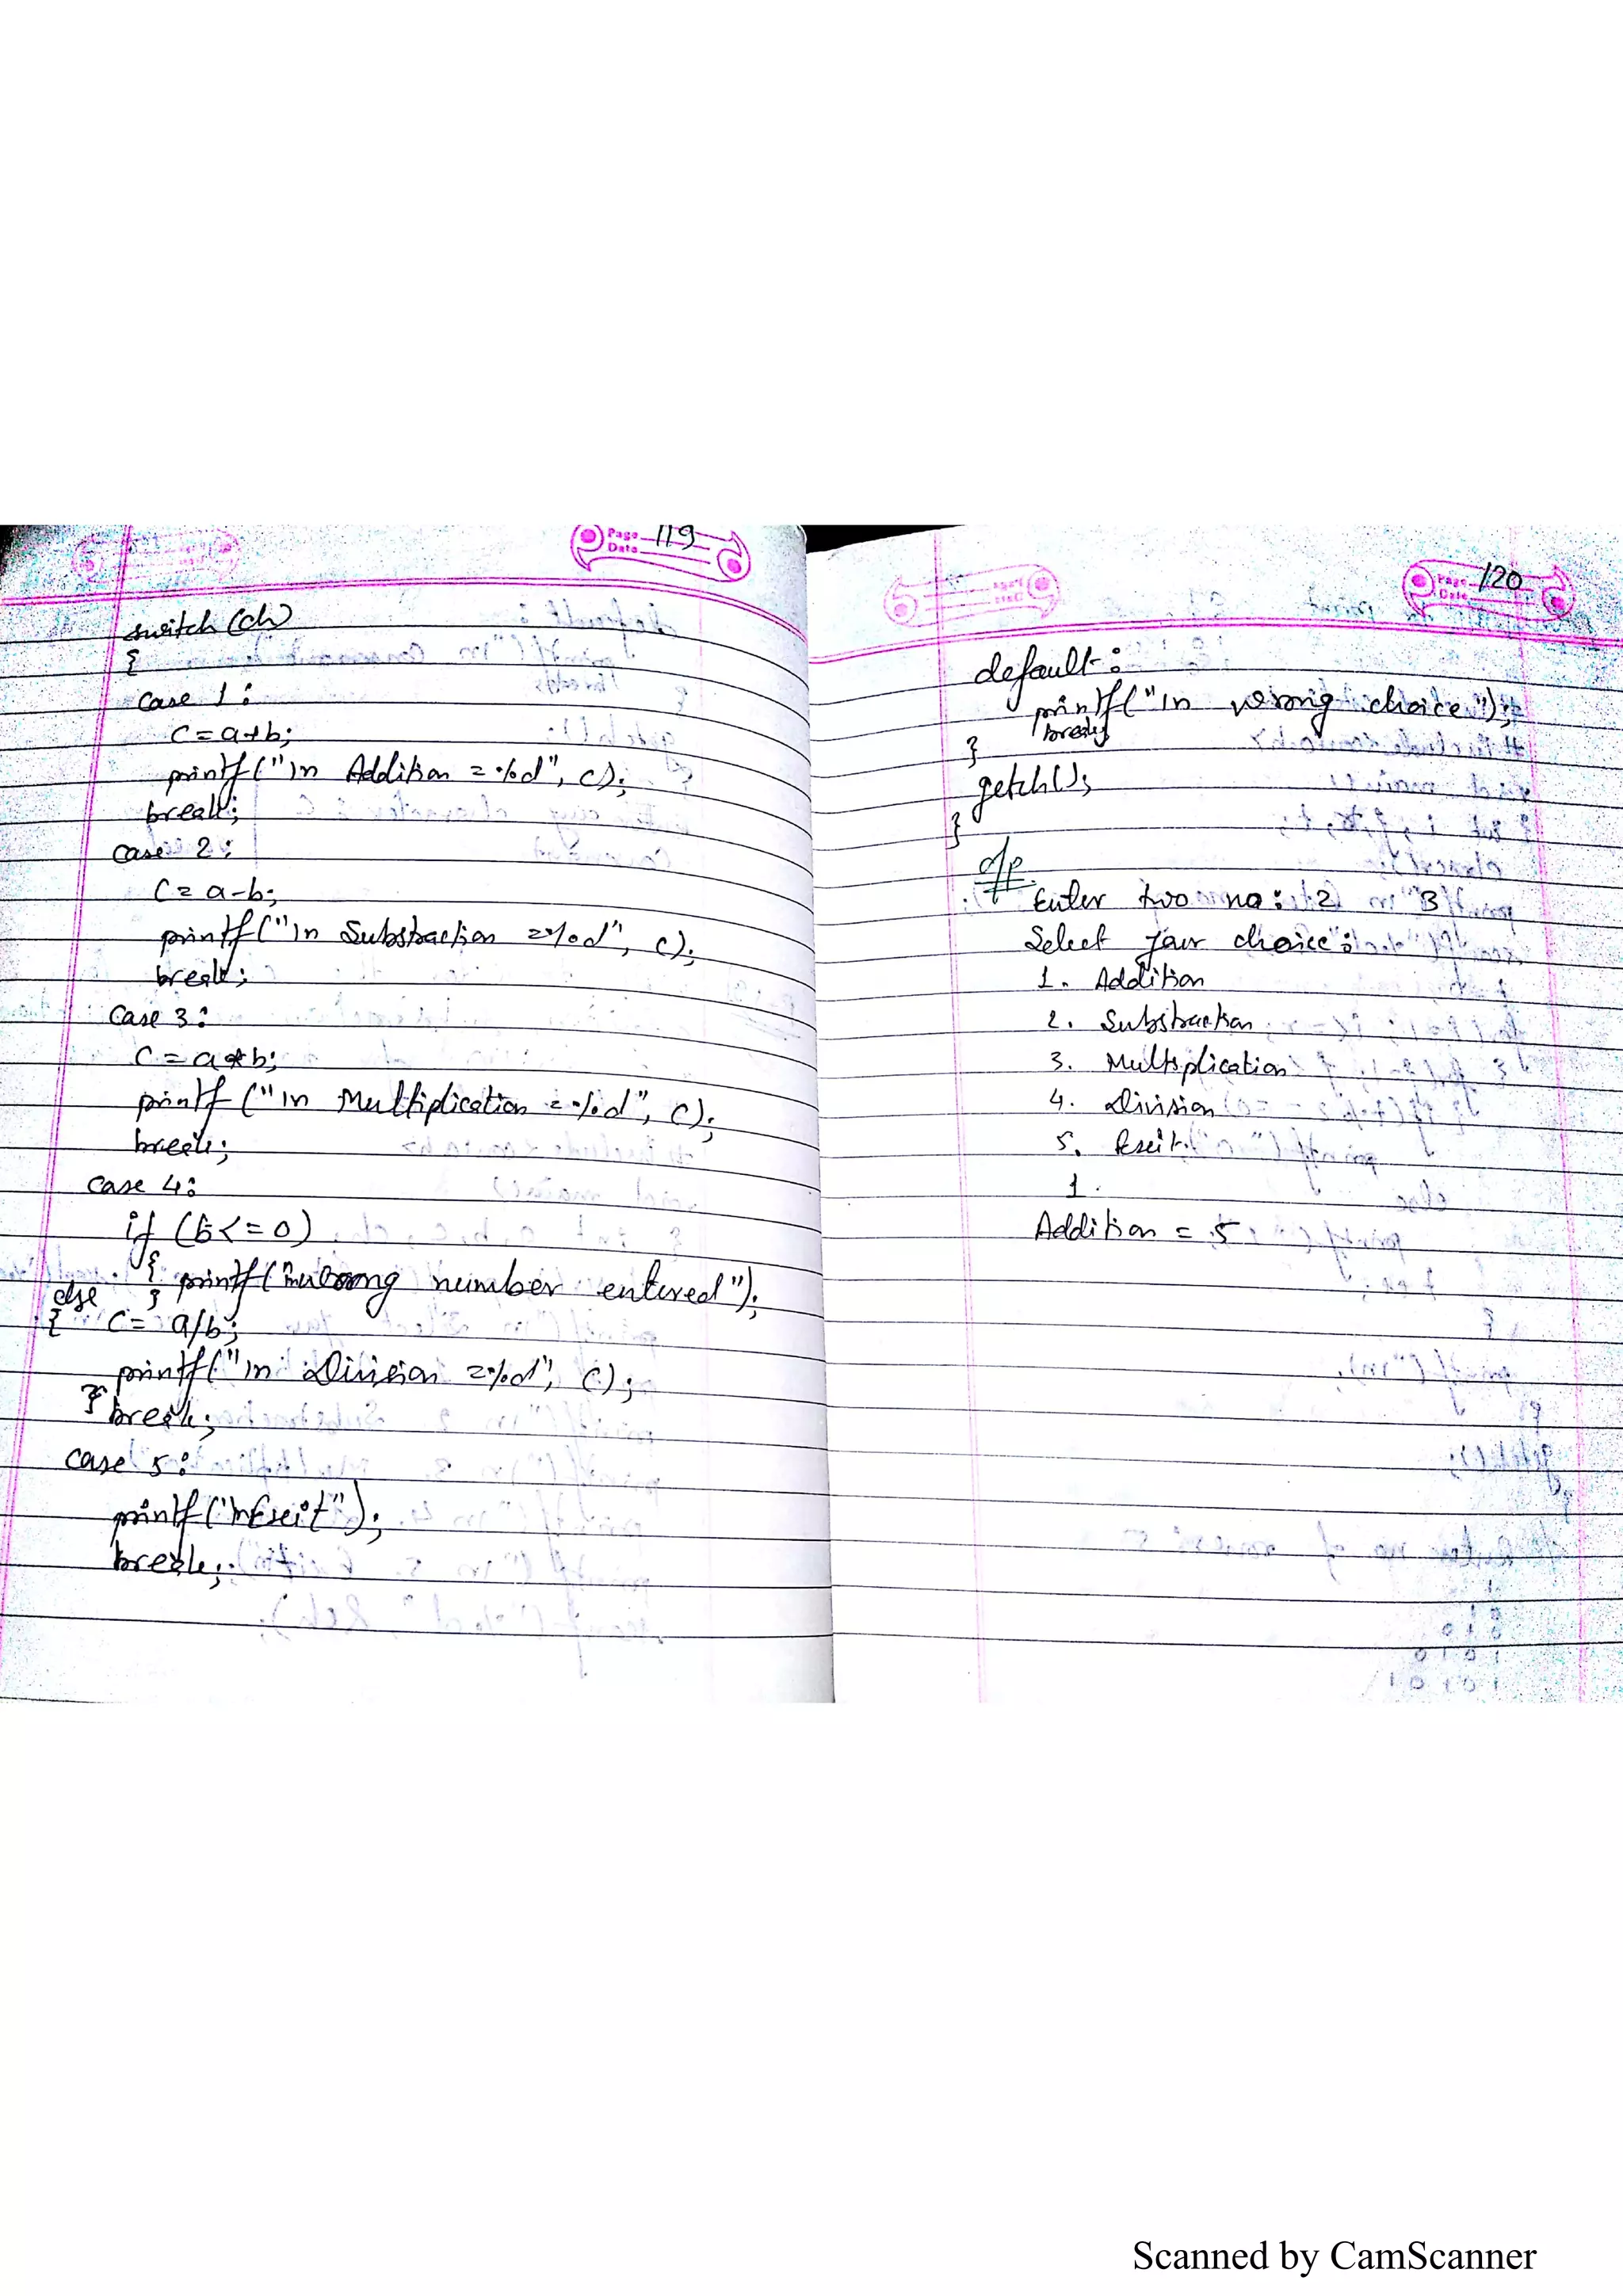 Page 119
Date
switch (ch)
{
case 1:
c = a+b;
printf("\n Addition = %d", c);
break;
case 2:
c = a-b;
printf("\n Substraction = %d", c);
break;
case 3:
c = a*b;
printf("\n Multiplication = %d", c);
break;
case 4:
if (b<=0)
{ printf("\n wrong number entered");
else }
{ c = a/b;
printf("\n Division = %d", c);
} break;
case 5:
printf("\n Exit");
break;
Page 120
Date
default:
printf("\n wrong choice");
break;
}
getch();
}
o/p
Enter two no: 2 3
Select your choice:
1. Addition
2. Substraction
3. Multiplication
4. Division
5. Exit.
1.
Addition = 5
Scanned by CamScanner